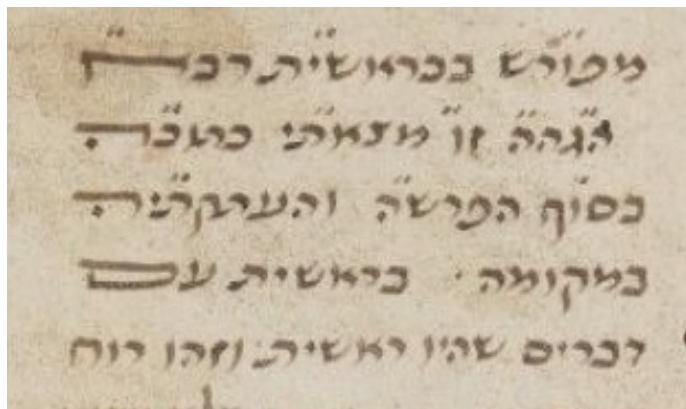 מפורש בבראשית רבה
הגהה זו מצאתי כתובה
בסוף הפרשה והעתקתיה
במקומה · בראשית עם
דברים שהיו ראשית וזהו רוח